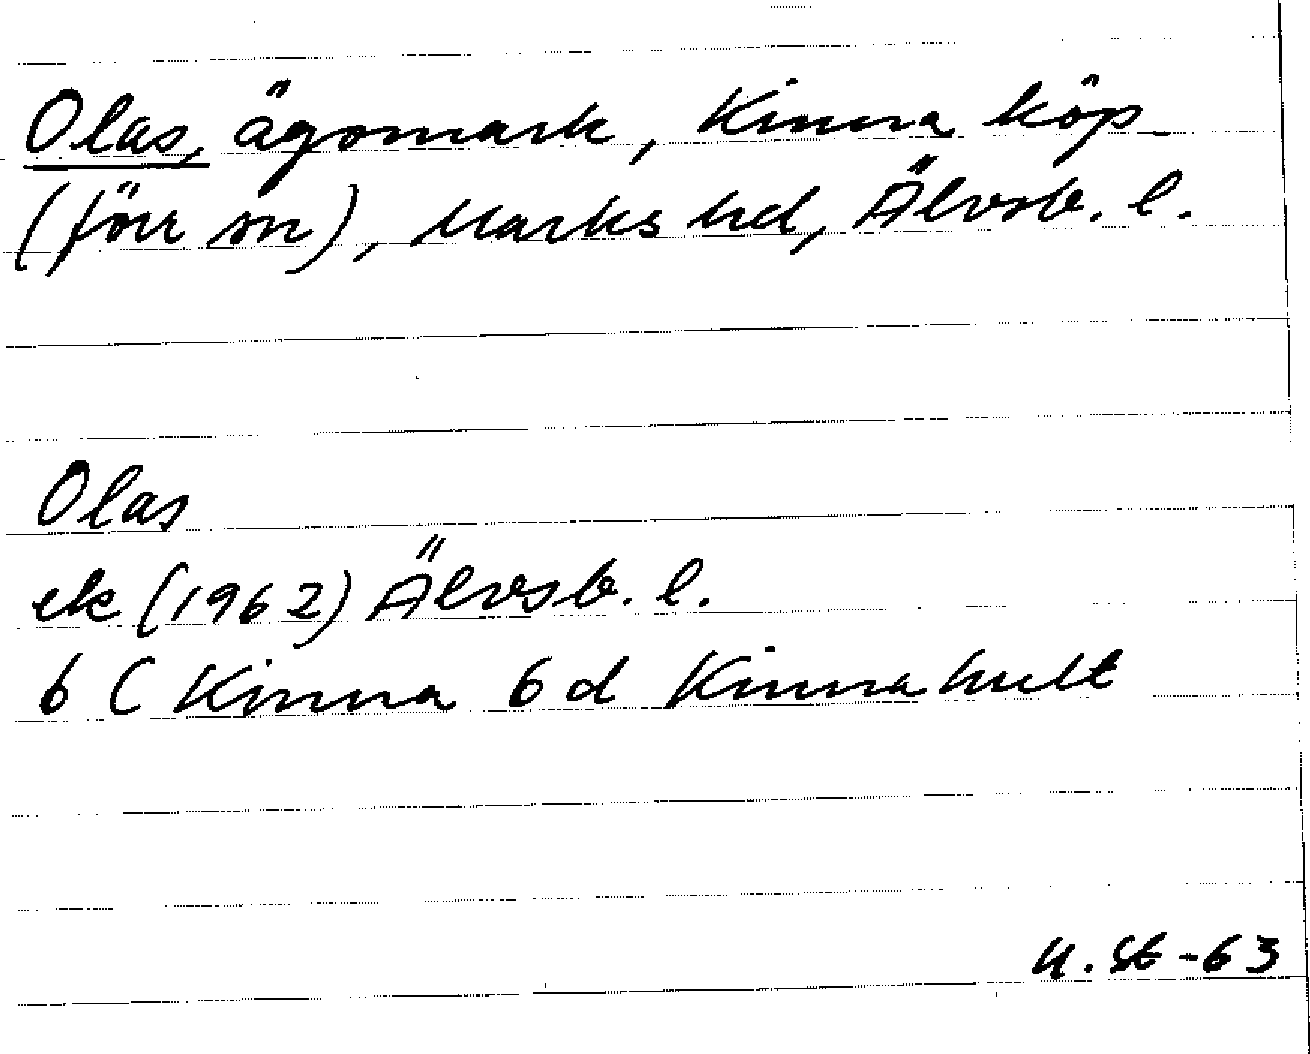 Olas, ägomark, Kinna köp
(förr sn), Marks hd, Älvsb. l.
Olas
ek (1962) Älvsb. l.
6 C Kinna 6 d Kinnahult
U. St -63